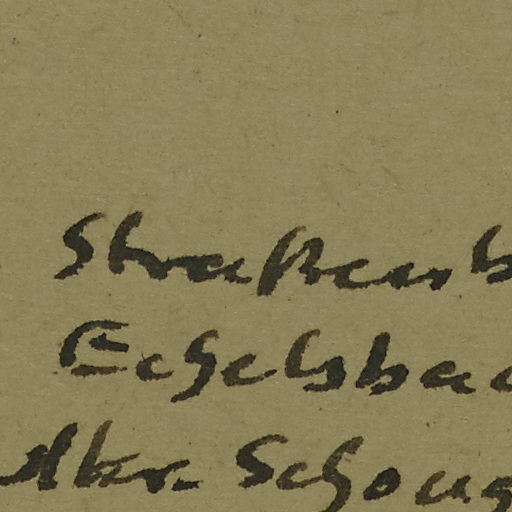 Straßenb
Echelsbac
Alter Schong